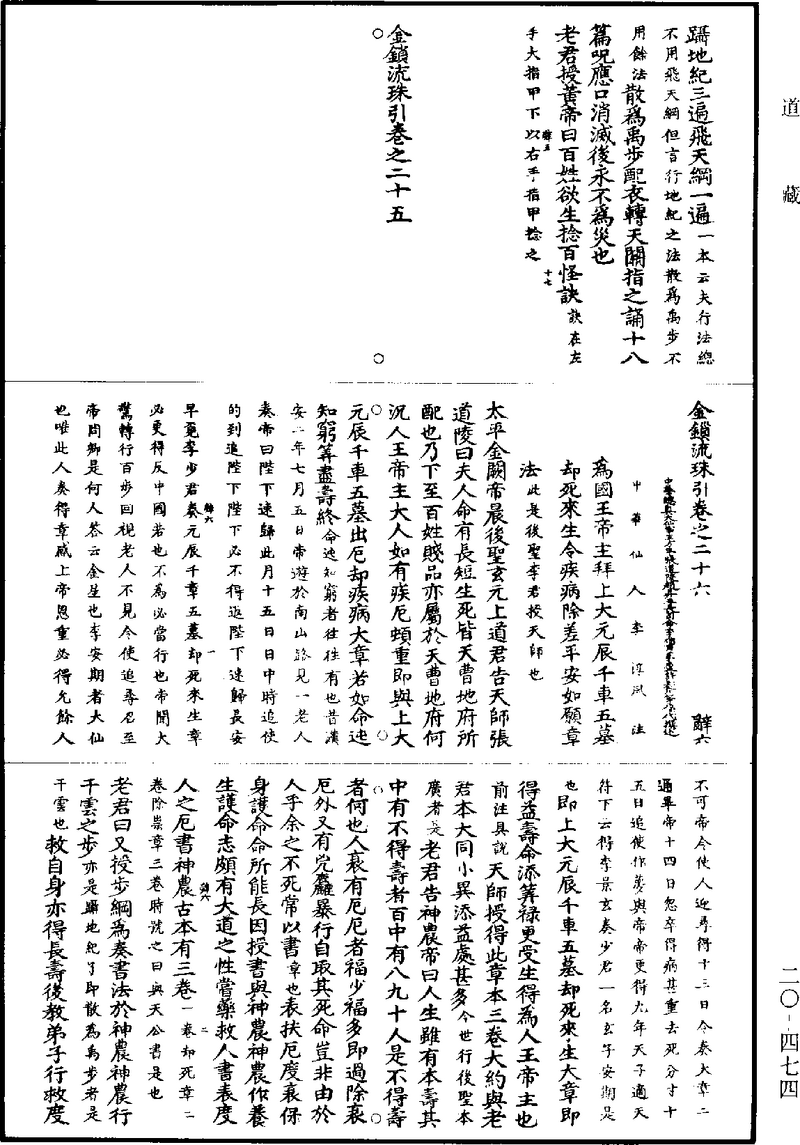 道藏
躡地紀三遍飛天綱一遍一本云夫行法總
不用飛天綱但言行地紀之法散爲禹步不
用餘法散爲禹步配衣轉天關指之誦十八
篇呪應口消滅後永不爲災也
老君授黃帝曰百姓欲生捻百怪訣訣在左
手大指甲下以右手指甲捻之
金鎖流珠引卷之二十五
金鎖流珠引卷之二十六 辭六
中華仙人李淳風注
爲國王帝主拜上大元辰千車五墓
却死來生令疾病除差平安如願章
法此是後聖李君授天師也
太平金闕帝晨後聖玄元上道君告天師張
道陵曰夫人命有長短生死皆天曹地府所
配也乃下至百姓賤品亦屬於天曹地府何
況人王帝主大人如有疾厄頻重即與上大
元辰千車五墓出厄却疾病大章若如命速
知窮筭盡壽終命速知窮者往往有也昔漢
安二年七月五日帝遊於南山路見一老人
奏帝曰陛下速歸此月十五日日中時追使
的到追陛下陛下必不得返陛下速歸長安
早覓李少君奏元辰千章五墓却死來生章
必更得反中國若也不爲必當行也帝聞大
驚轉行百步回視老人不見令使追尋召至
帝問卿是何人荅云金星也李安期者大仙
也唯此人奏得章感上帝恩重必得允餘人
不可帝令使人近尋得十三日令奏大章二
通畢帝十四日忽卒得病甚重去死分寸十
五日追使作羹與帝帝更得九年天子適天
符下云得李景玄奏少君一名玄字安期是
也即上大元辰千車五墓却死來生大章即
得益壽命添筭祿更受生得爲人王帝主也
前注具說天師授得此章本三卷大約與老
君本大同小異添益處甚多今世行後聖本
廣者是老君告神農帝曰人生雖有本壽其
中有不得壽者百中有八九十人是不得壽
者何也人衰有厄厄者福少福多即過除衰
厄外又有兇麤暴行自取其死命豈非由於
人乎余之不死常以書章也表扶厄度衰保
身護命命所能長因授書與神農神農作養
生護命志頗有大道之性嘗藥救人書表度
人之厄書神農古本有三卷一卷却死章二
卷除祟章三卷時號之曰與天公書是也
老君曰又授步綱爲奏書法於神農神農行
干雲之步亦是躡地紀了即散爲禹步者是
干雲也救自身亦得長壽後教弟子行救度
二〇-四七四